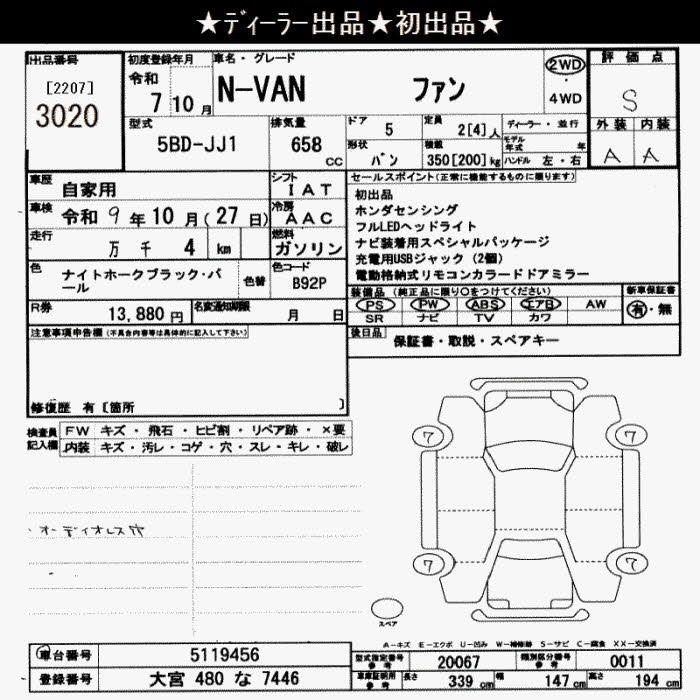 ★ディーラー出品★初出品★
出品番号 初度登録年月 車名・グレード 2WD・4WD 評価点
[2207] 3020 令和 7 10月 N-VAN ファン S
型式 5BD-JJ1 排気量 658 CC ドア 5 定員 2[4]人 ディーラー・並行 外装 内装
形状 バン 積載 350[200]kg モデル年式 年 ハンドル 左・右 A A
車歴 自家用 シフト IAT セールスポイント(正常に機能するものに限ります)
車検 令和 9年 10月(27日) 冷房 AAC
初出品
ホンダセンシング
フルLEDヘッドライト
ナビ装着用スペシャルパッケージ
充電用USBジャック (2個)
電動格納式リモコンカラードドアミラー
走行 万 千 4 km 燃料 ガソリン
色 ナイトホークブラック・パール 色替 色コード B92P
装備品 (純正品に限り○をつけてください) 新車保証書
PS PW ABS エアB AW 有・無
SR ナビ TV カワ
R券 13,880円 名変通知期限 月 日
後日品 保証書・取説・スペアキー
注意事項申告欄(不具合内容等は具体的に記入して下さい)
修復歴 有〔箇所 〕
検査員記入欄 FW キズ・飛石・ヒビ割・リペア跡・×要
内装 キズ・汚レ・コゲ・穴・スレ・キレ・破レ
7 7
・オーディオレス
7 7
スペア
A−キズ E−エクボ U−凹み W−補修跡 S−サビ C−腐食 XX−交換済
車台番号 5119456 型式指定番号参考 20067 類別区分番号参考 0011
登録番号 大宮 480 な 7446 車庫証明用参考 長さ 339cm 幅 147cm 高さ 194cm